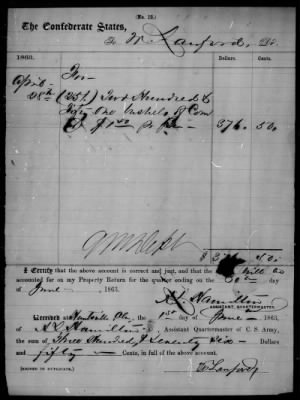 (No. 22.)
The Confederate States,
To W Lanford, Dr.
1863. Dollars. Cents.
April For
28th (251) Two Hundred &
Fifty One bushels of Corn
@ $1.50 pr Bu— 376. 50
$ 376 50
I Certify that the above account is correct and just, and that
accounted for on my Property Return for the quarter ending on the 30th
day of June , 1863.
A L Hamilton
ASSISTANT QUARTERMASTER.
Received at Huntsville Ala, the 1st day of June 1863,
of A L Hamilton , Assistant Quartermaster of C. S. Army,
the sum of Three Hundred & Seventy Six — Dollars
and fifty — Cents, in full of the above account.
(SIGNED IN DUPLICATE.) W Lanford